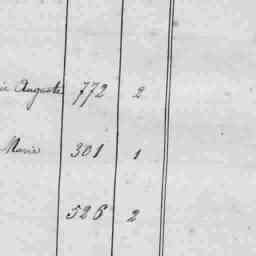 Auguste 772 2
Marie 301 1
526 2